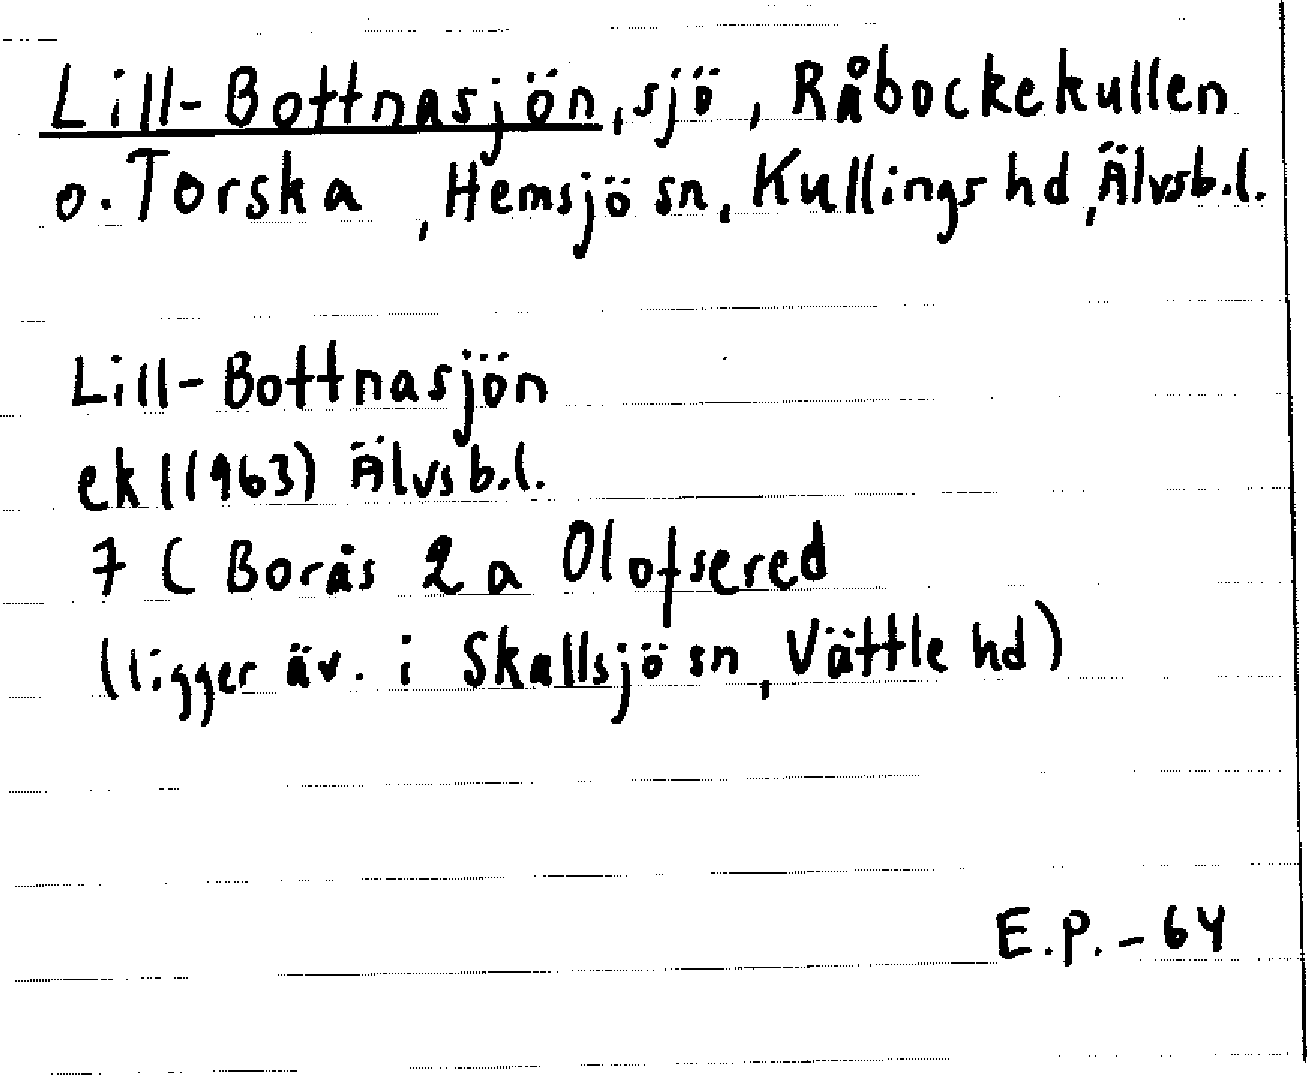 Lill-Bottnasjön, sjö, Råbockekullen
o. Torska, Hemsjö sn, Kullings hd, Älvsb.l.
Lill-Bottnasjön
ekl(1963) Älvsb.l.
7 C Borås 2 a Olofsered
(ligger äv. i Skallsjö sn, Vättle hd)
E.P.-64